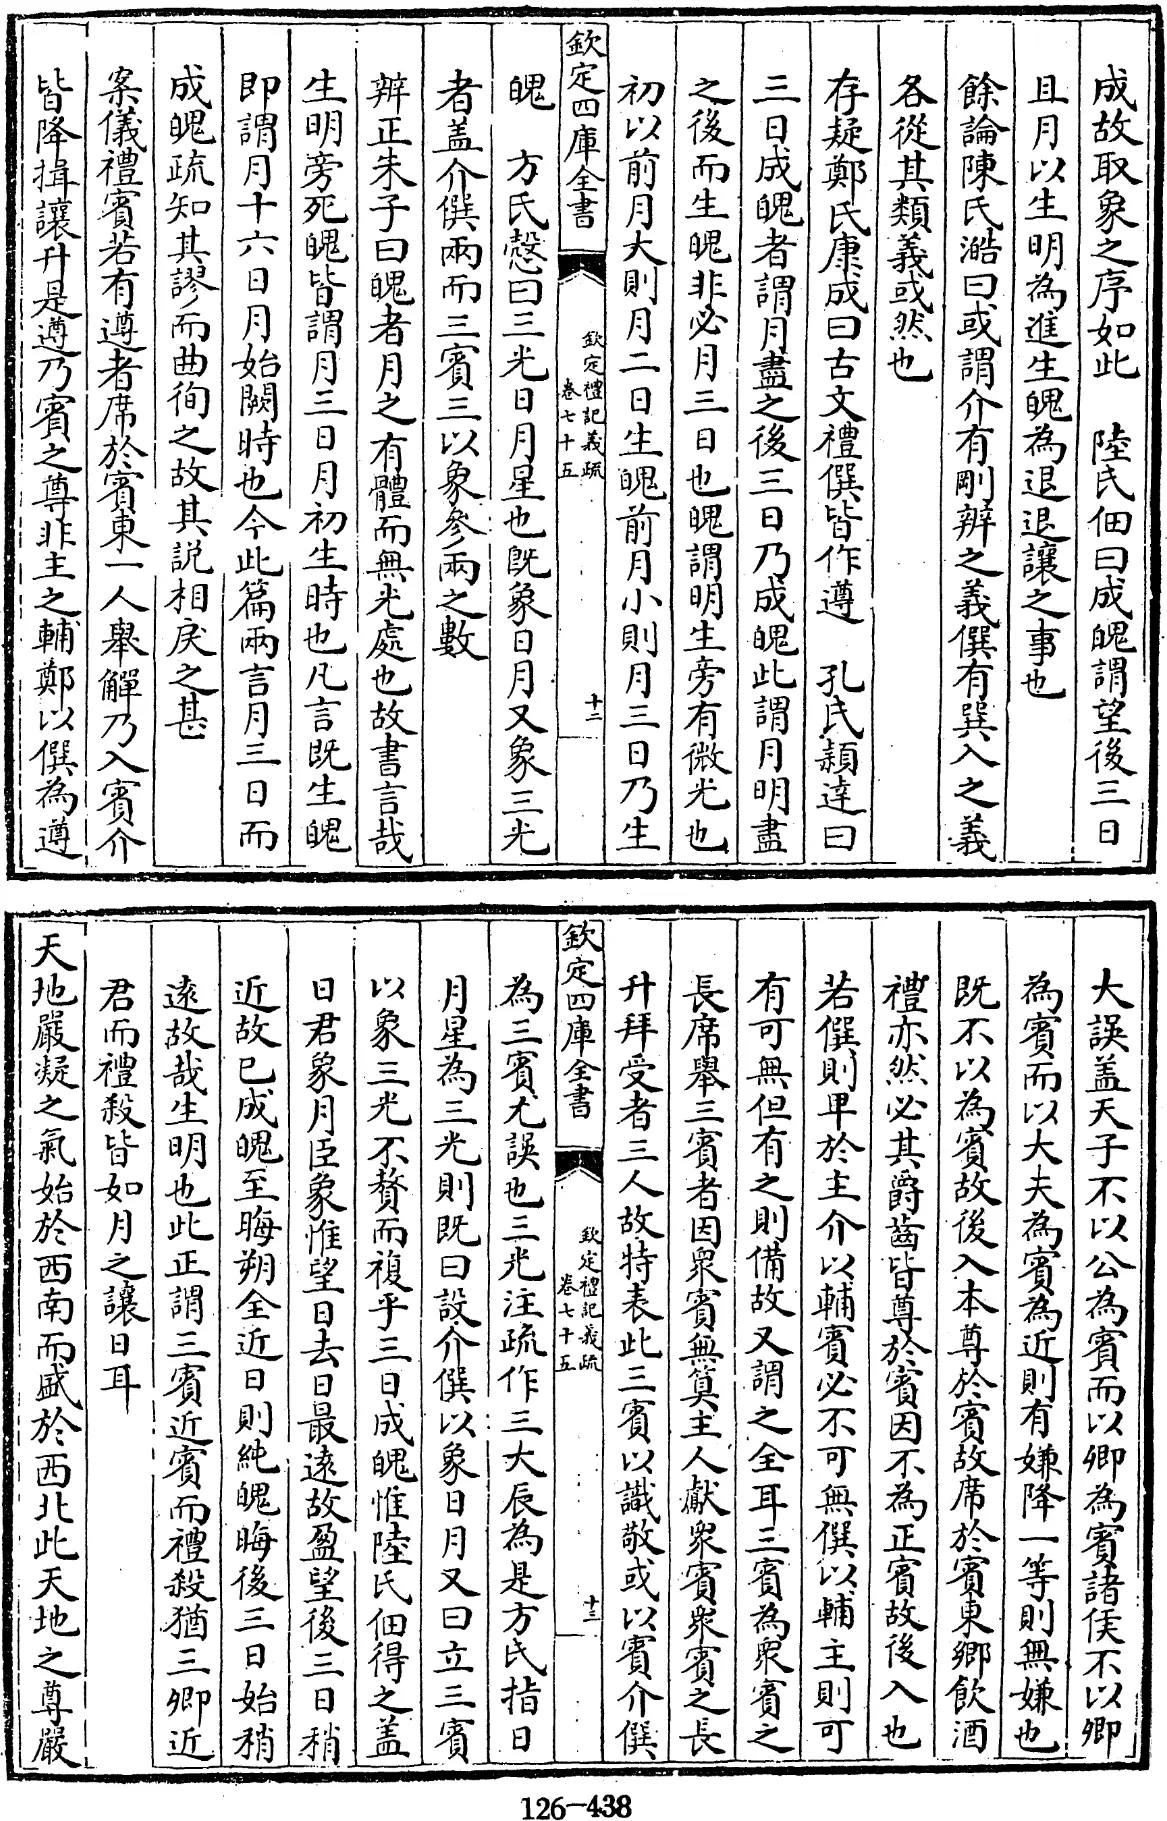 成故取象之序如此　陸氏佃曰成魄謂望後三日
且月以生明為進生魄為退退讓之事也
餘論陳氏澔曰或謂介有剛辨之義僎有巽入之義
各從其類義或然也
存疑鄭氏康成曰古文禮僎皆作遵　孔氏穎達曰
三日成魄者謂月盡之後三日乃成魄此謂月明盡
之後而生魄非必月三日也魄謂明生旁有微光也
初以前月大則月二日生魄前月小則月三日乃生
欽定四庫全書
欽定禮記義疏
卷七十五
十二
魄　方氏慤曰三光日月星也既象日月又象三光
者盖介僎兩而三賓三以象參兩之數
辨正朱子曰魄者月之有體而無光處也故書言哉
生明旁死魄皆謂月三日月初生時也凡言既生魄
即謂月十六日月始闕時也今此篇兩言月三日而
成魄疏知其謬而曲徇之故其說相戾之甚
案儀禮賓若有遵者席於賓東一人舉觶乃入賓介
皆降揖讓升是遵乃賓之尊非主之輔鄭以僎為遵
大誤盖天子不以公為賓而以卿為賓諸侯不以卿
為賓而以大夫為賓為近則有嫌降一等則無嫌也
既不以為賓故後入本尊於賓故席於賓東鄉飲酒
禮亦然必其爵齒皆尊於賓因不為正賓故後入也
若僎則卑於主介以輔賓必不可無僎以輔主則可
有可無但有之則備故又謂之全耳三賓為衆賓之
長席舉三賓者因衆賓無算主人獻衆賓衆賓之長
升拜受者三人故特表此三賓以識敬或以賓介僎
欽定四庫全書
欽定禮記義疏
卷七十五
十三
為三賓尤誤也三光注疏作三大辰為是方氏指日
月星為三光則既曰設介僎以象日月又曰立三賓
以象三光不贅而複乎三日成魄惟陸氏佃得之盖
日君象月臣象惟望日去日最遠故盈望後三日稍
近故已成魄至晦朔全近日則純魄晦後三日始稍
遠故哉生明也此正謂三賓近賓而禮殺猶三卿近
君而禮殺皆如月之讓日耳
天地嚴凝之氣始於西南而盛於西北此天地之尊嚴
126-438